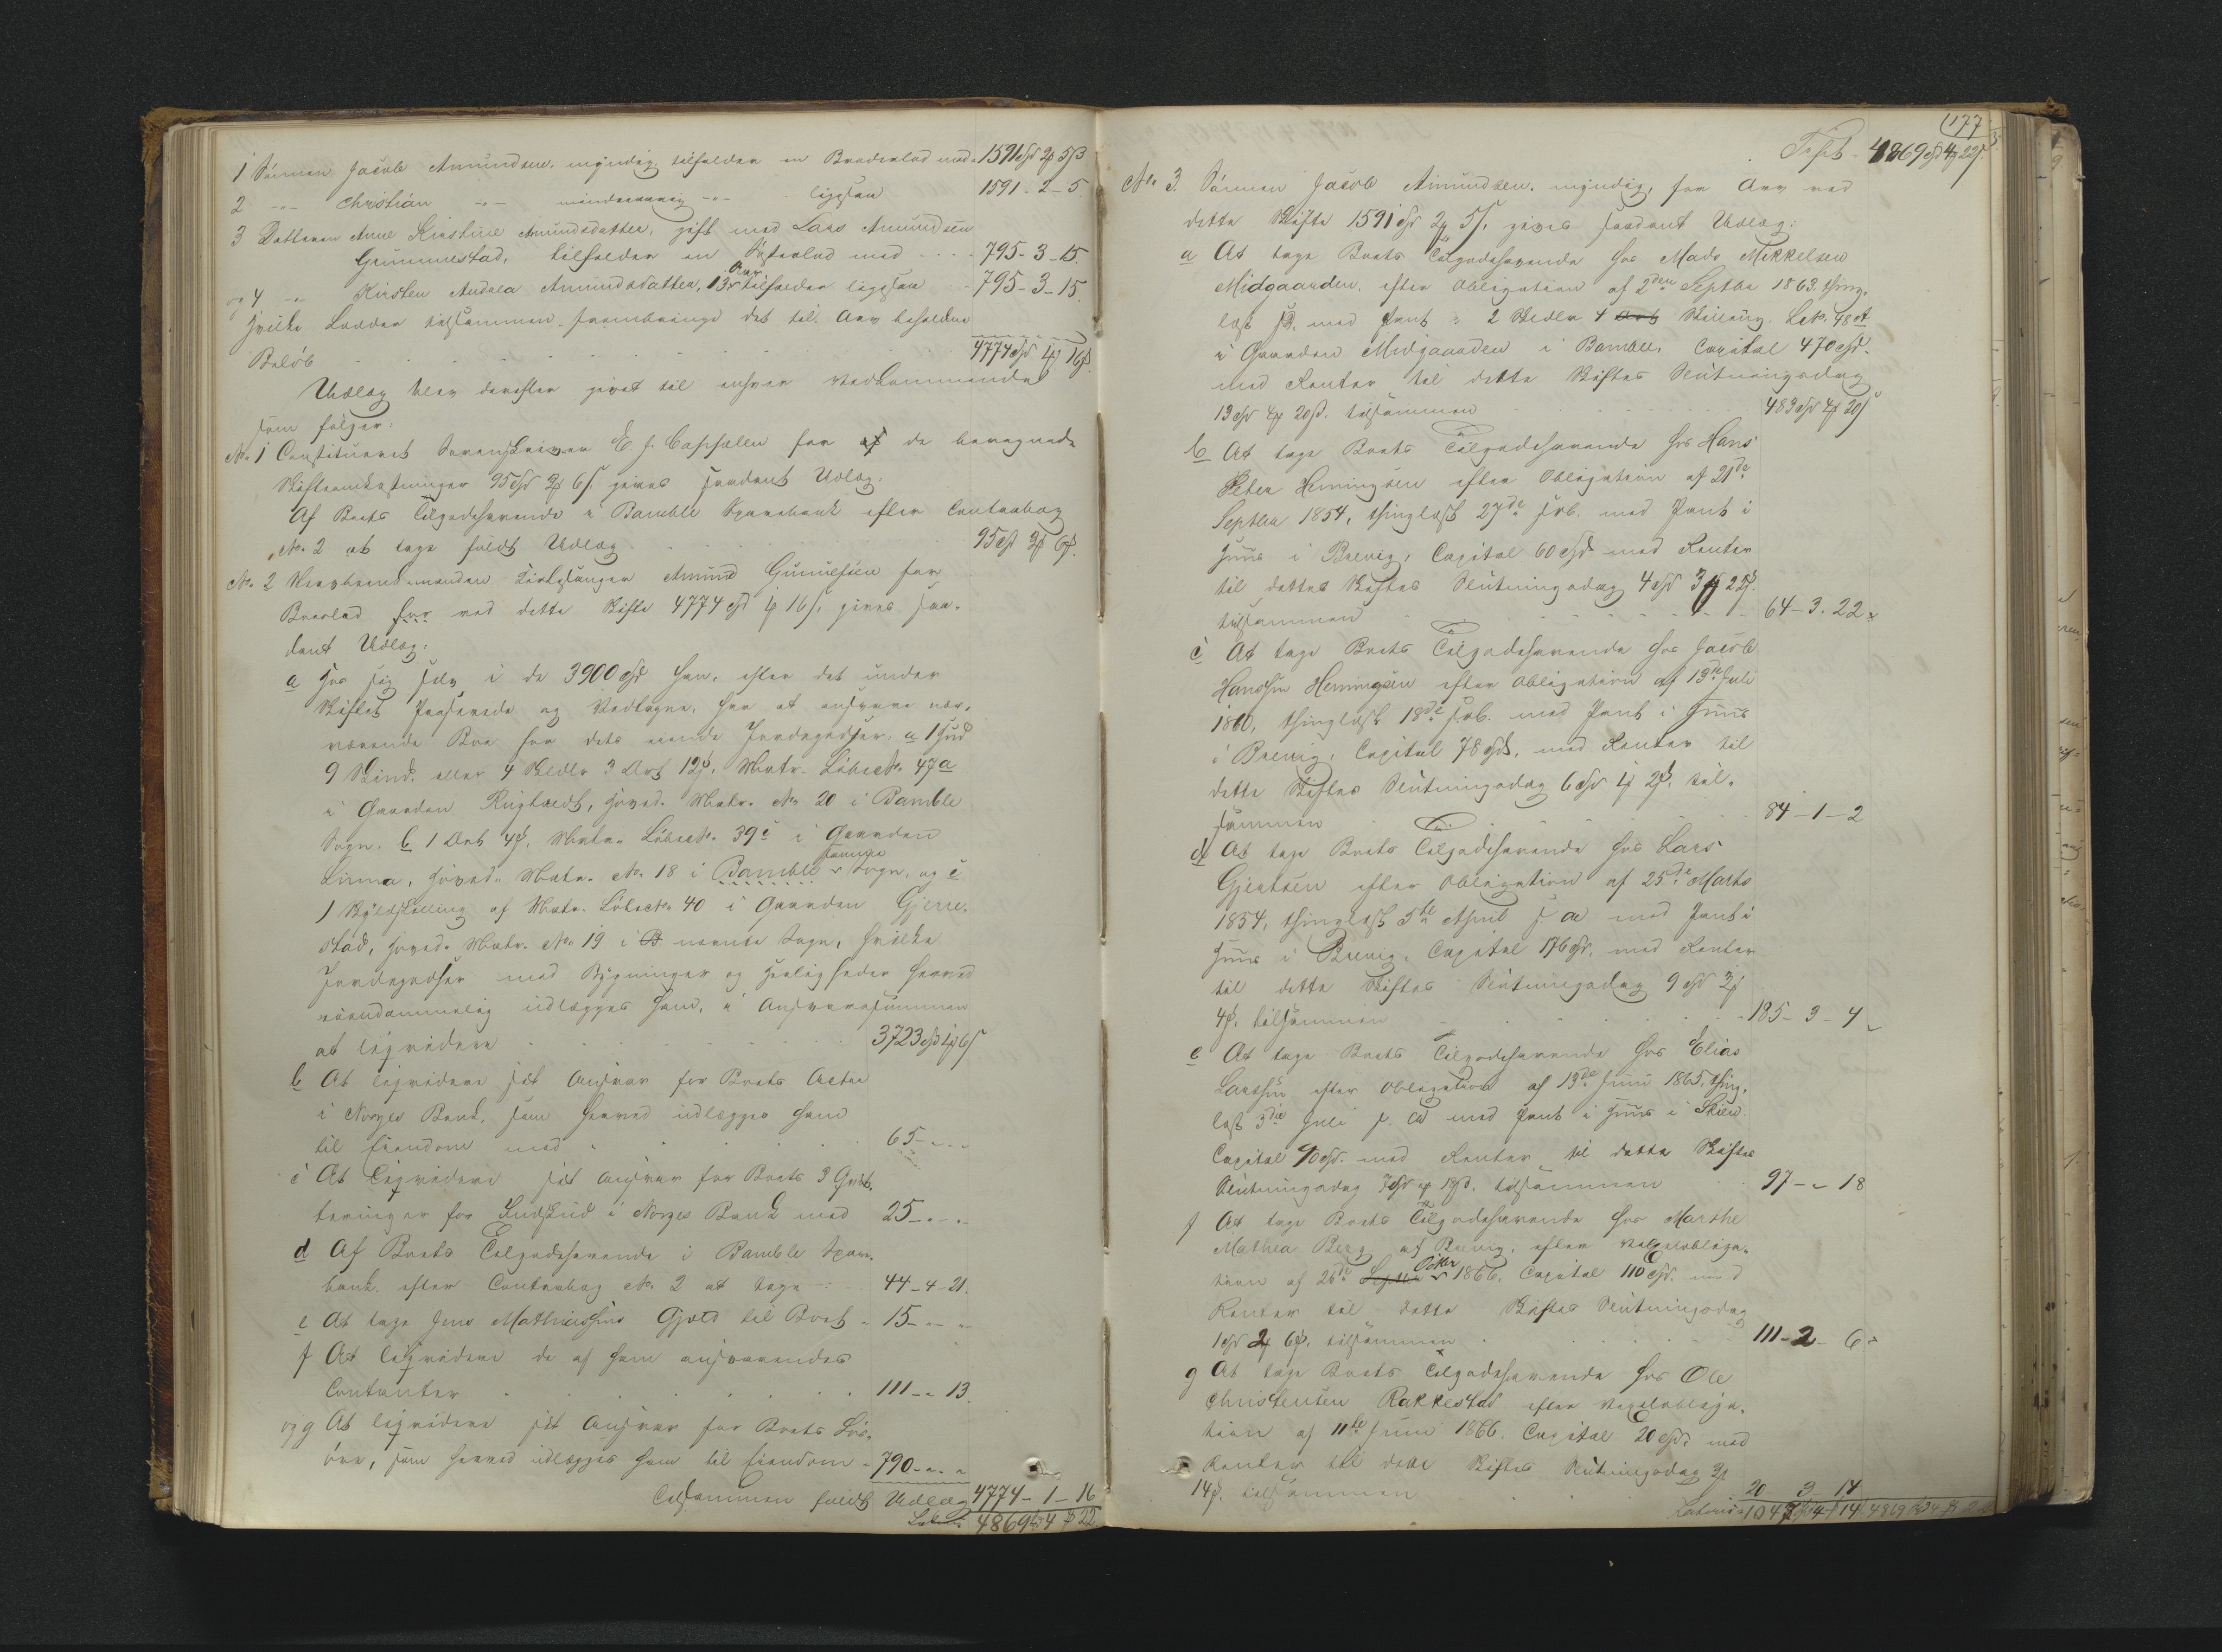 1 Sønnen Jacob Amundsen, myndig, tilfalder en Broderlod med 1591 Spd 2 ƒ 5 ß
2 -"- Christian -"- mindreaarig -"- ligesaa 1591 - 2 - 5
3 Datteren Anne Kirstine Amundsdatter, gift med Lars Amundsen
Grummestad, tilfalder en Søsterlod med . . . . 795 - 3 - 15
og 4 -"- Kirsten Andrea Amundsdatter, 13 Aar, tilfalder ligesaa . . 795 - 3 - 15.
hvilke Lodder tilsammen frembringe det til Arv beholdne
Beløb . . . . . . . . 4774 Spd 1 ƒ 16 ß.
Udlæg blev derefter givet til enhver Vedkommende
som følger:
No. 1 Constitueret Sorenskriver E. J. Cappelen for af de beregnede
Skifteomkostninger 95 Spd 3 ƒ 6 ß. gives saadant Udlæg:
Af Boets Tilgodehavende i Bamble Sparebank efter Contrabog
No. 2 at tage fuldt Udlæg . . . . 95 Spd 3 ƒ 6 ß.
No. 2 Stervboenkemanden Kirkesanger Amund Gunulfsen for
Boeslod for ved dette Skifte 4774 Spd 1 ƒ 16 ß, gives saa-
dant Udlæg:
a Hos sig selv i de 3900 Spd han, efter det under
Skiftet Passerede og Vedtagne, har at ansvare nær-
værende Bo for dets eiende Jordegodser: a 1 Hud
9 Skind. eller 4 Skdlr 3 Ort 12 ß. Matr. Løbe No. 47a
i Gaarden Rugtvedt, hoved. Matr. No. 20 i Bamble
Sogn. b 1 Ort 4 ß. Matr. Løbe No. 39c i Gaarden
Linna, hoved. Matr. No. 18 i Bamble samme Sogn, og c
1 Skyldskilling af Matr. Løbe No. 40 i Gaarden Gjerre-
stad, hoved. Matr. No. 19 i B nævnte Sogn, hvilke
Jordegodser med Bygninger og Herligheder herved
eiendommelig udlægges ham, i Ansvarssummen
at liqvidere . . . . . . 3723 Spd 1 ƒ 6 ß
b At liqvidere sit Ansvar for Boets Actie
i Norges Bank, som herved udlægges ham
til Eiendom med . . . . 65 - " - "
c At liqvidere sit Ansvar for Boets 3 Qvit-
teringer for Indskud i Norges Bank med 25 - " - "
d Af Boets Tilgodehavende i Bamble Spare-
bank efter Contrabog No. 2 at tage . . 44 - 4 - 21.
e At tage Jens Mathiassens Gjæld til Boet - 15 - " - "
f At liqvidere de af ham ansvarendes
Contanter . . . . . . 111 - " - 13.
og g At liqvidere sit Ansvar for Boets Løs-
øre, som herved udlægges ham til Eiendom - 790 - " - "
Tilsammen fuldt Udlæg 4774 - 1 - 16
Lateris 4869 Spd 4 ƒ 22
177
Trspt. 4869 Spd 4 ƒ 22 ß.
No. 3. Sønnen Jacob Amundsen, myndig, for Arv ved
dette Skifte 1591 Spd 2 ƒ 5 ß, gives saadant Udlæg:
a At tage Boets Tilgodehavende hos Mads Mikkelsen
Midgaarden, efter Obligation af 2den Septbr 1863. thing-
læst med Pant i 2 Skdlr 4 Ort Skilling. Løb No. 48 A
i Gaarden Midgaarden i Bamble, Capital 470 Spd.
med Renter til dette Skiftes Slutningsdag
13 Spd 4 ƒ 20 ß. tilsammen . . . 483 Spd 4 ƒ 20 ß
b At tage Boets Tilgodehavende hos Hans
Peter Hemingsen efter Obligation af 21de
Septbr. 1854, thinglæst 27de s. M. med Pant i
Huus i Brevig, Capital 60 Spd. med Renter
til dettes Skiftes Slutningsdag 4 Spd 3 ƒ 22 ß.
tilsammen . . . . 64 - 3 . 22
c At tage Boets Tilgodehavende hos Jacob
Hanssen Hemingsen efter Obligation af 13de Juli
1860, thinglæst 18de s. M. med Pant i Huus
i Brevig, Capital 78 Spd., med Renter til
dette Skiftes Slutningsdag 6 Spd 1 ƒ 2 ß. til-
sammen . . . . . 84 - 1 - 2
d At tage Boets Tilgodehavende hos Lars
Gjertsen efter Obligation af 25de Marts
1854, thinglæst 5te April s. A. med Pant i
Huus i Brevig. Capital 176 Spd. med Renter
til dette Skiftes Slutningsdag 9 Spd 3 ƒ
4 ß. tilsammen . . . . 185 - 3 - 4
e At tage Boets Tilgodehavende hos Elias
Larssen efter Obligation af 19de Juni 1865, thing-
læst 3die Juli s. A. med Pant i Huus i Skien.
Capital 90 Spd. med Renter til dette Skiftes
Slutningsdag 7 Spd " ƒ 18 ß. tilsammen . . 97 - " - 18
f At tage Boets Tilgodehavende hos Marthe
Mathea Berg af Brevig, efter Vexelobliga-
tion af 26de Septbr Octbr 1866. Capital 110 Spd. med
Renter til dette Skiftes Slutningsdag
1 Spd 2 ƒ 6 ß. tilsammen . . . 111 - 2 - 6
g At tage Boets Tilgodehavende hos Ole
Christensen Rakkestad efter Vexelobliga-
tion af 11te Juni 1866. Capital 20 Spd. med
Renter til dette Skiftes Slutningsdag 3 ƒ
14 ß. tilsammen . . . 20 3 14
Lateris 1047 Spd 4 ƒ 14 4869 Spd 4 ƒ 22